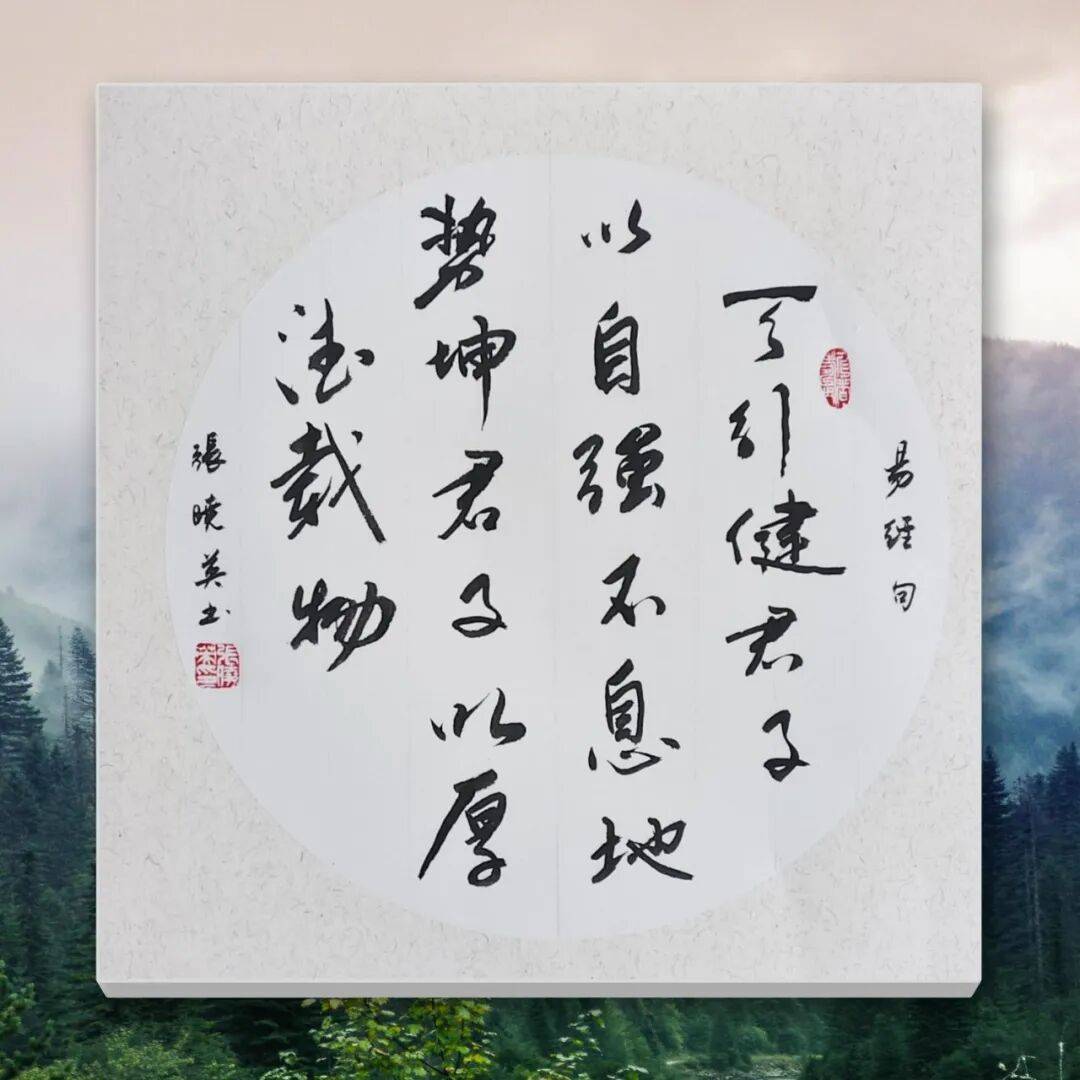 易經句
天行健君子
以自強不息地
势坤君子以厚
德載物
張曉英书